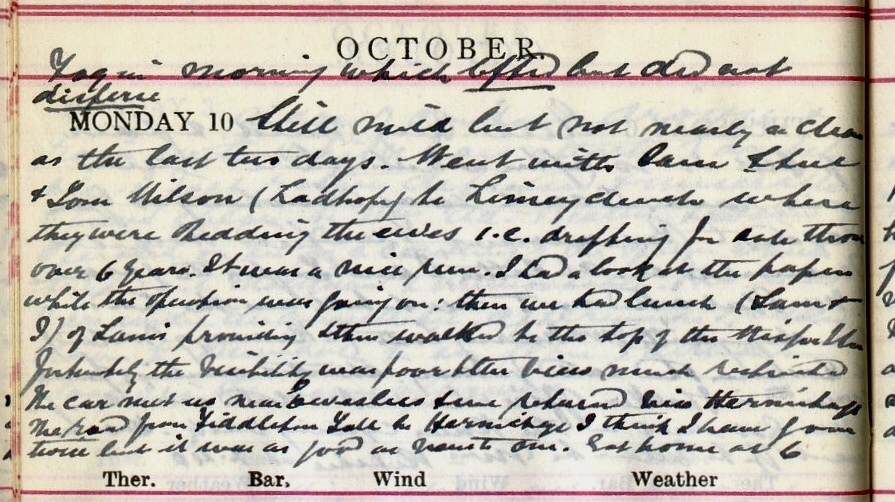 OCTOBER
Fog in morning which lifted but did not
disperse
MONDAY 10 Still mild but not nearly as clear
as the last two days. Went with Sam
& Tom Wilson (Ladhope) to where
they were shedding the ewes i.e. drafting for sale those
over 6 years. It was a nice run. I had a look at the paper
while the operation was going on: then we had lunch (Sam &
I) of Sam's providing & then walked to the top of the
the visibility was poor & the view much restricted
The car met us near & we returned via Hermitage
The road from Fiddleton Toll to Hermitage I think I have gone
twice but it was as good as new to me. Got home at 6
Ther. Bar, Wind Weather